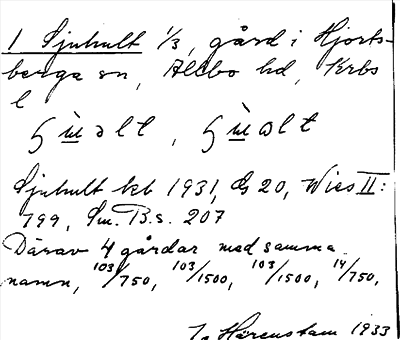 1 Sjuhult 1/3, gård i Hjorts-
berga sn, Allbo hd, Krbs
l
Sjuhult kbl 1931, GS 20, Wies II:
799, Sm. B. s. 207
Därav 4 gårdar med samma
namn, 103/750, 103/1500, 103/1500, 14/750,
J. Härenstam 1933